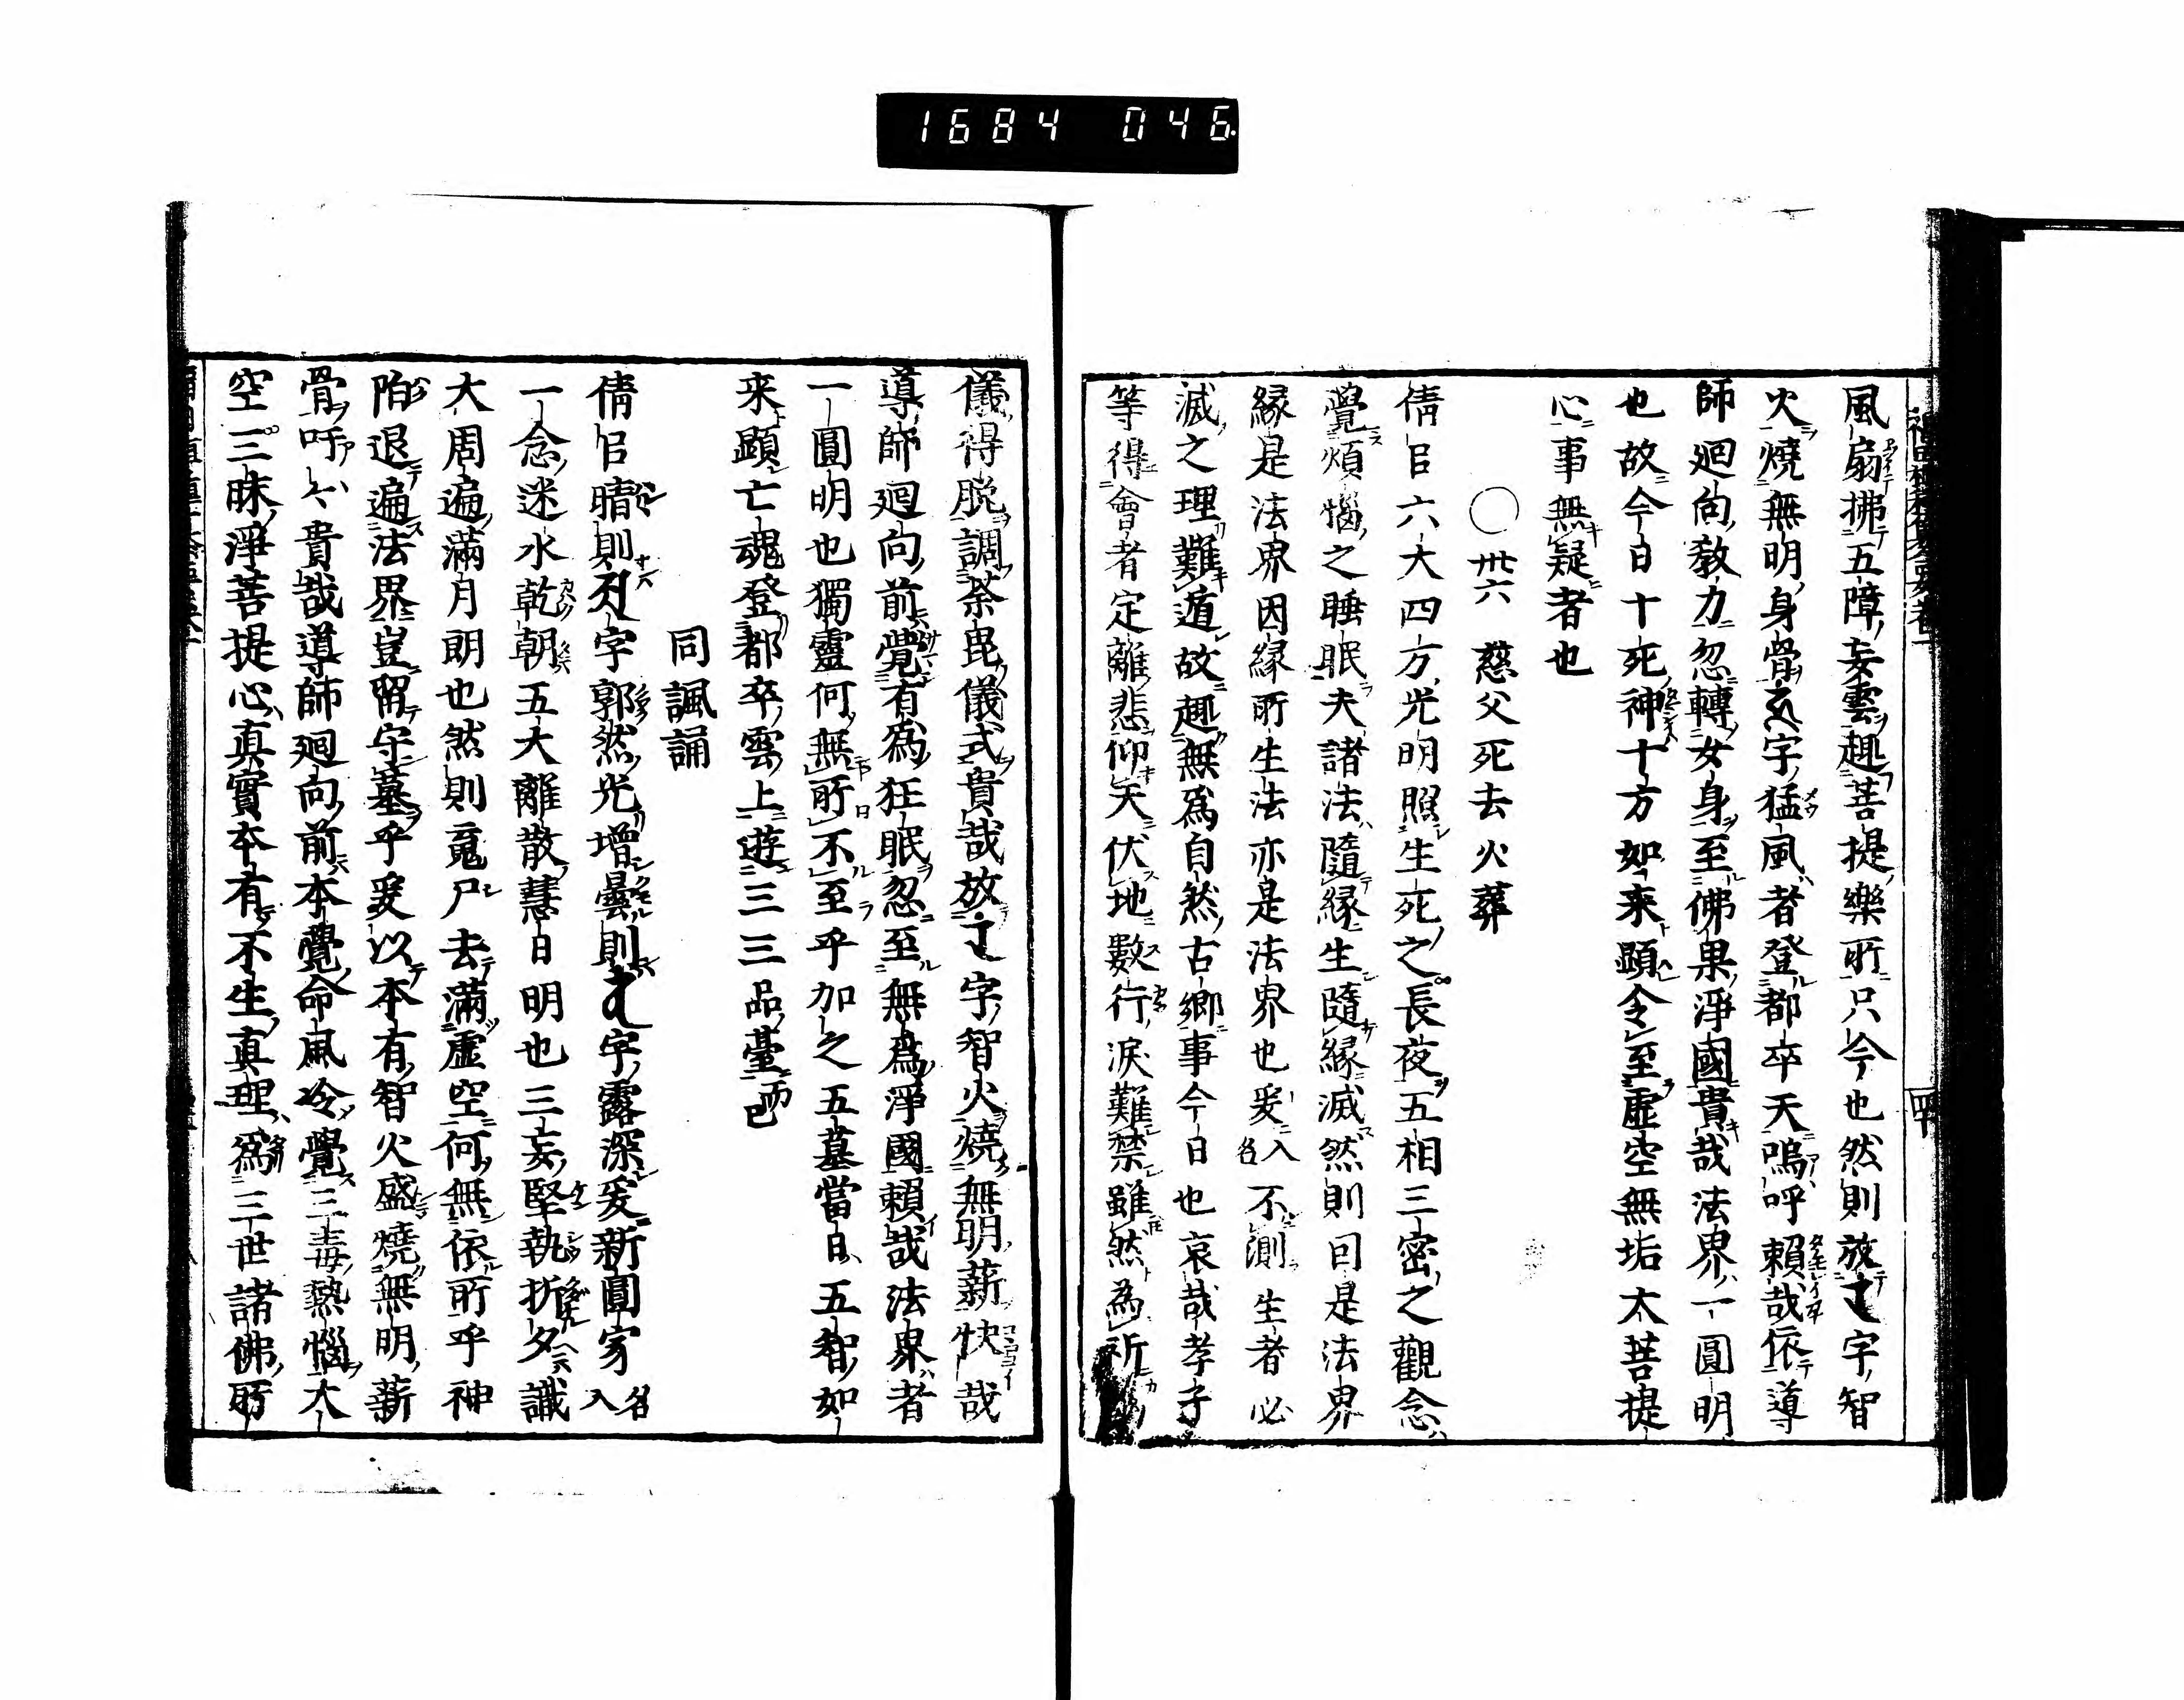 1684 046
風扇拂五障妄雲趣菩提樂所只今也然則放字智
火燒無明身骨字猛風者登都卒天嗚呼賴哉依導
師廻向教力忽轉女身至佛果淨國貴哉法界一圓明
也故今日十死神十方如来顕令至虚空無垢大菩提
心事無疑者也
〇卅六 慈父死去火葬
倩㠯六大四方光明照生死之長夜五相三密之觀念
覺煩惱之睡眠夫諸法隨縁生隨縁滅然則囙是法界
縁是法界因縁所生法亦是法界也爰入名不測生者必
滅之理難遁故趣無爲自然古郷事今日也哀哉孝子
等得會者定離悲仰天伏地數行淚難禁雖然為所
儀得脱調荼毘儀式貴哉放字智火燒無明薪快哉
導師廻向前覺有為狂眠忽至無為淨國賴哉法界者
一圓明也獨靈何無所不至乎加之五墓當日五智如
来顕亡魂登都卒雲上遊三三品臺而已
同諷誦
倩㠯晴則字郭然光增曇則字露深爰新圓寂名入
一念迷水乾朝五大離散慧日明也三妄堅執折夕識
大周遍滿月朗也然則竟尸去滿虚空何無依所乎神
陌退遍法界豈留守墓乎爰以本有智火盛燒無明薪
骨吁貴哉導師廻向前本覺命風冷覺三毒熱惱大
空三昧淨菩提心真實本有不生真理為三世諸佛所